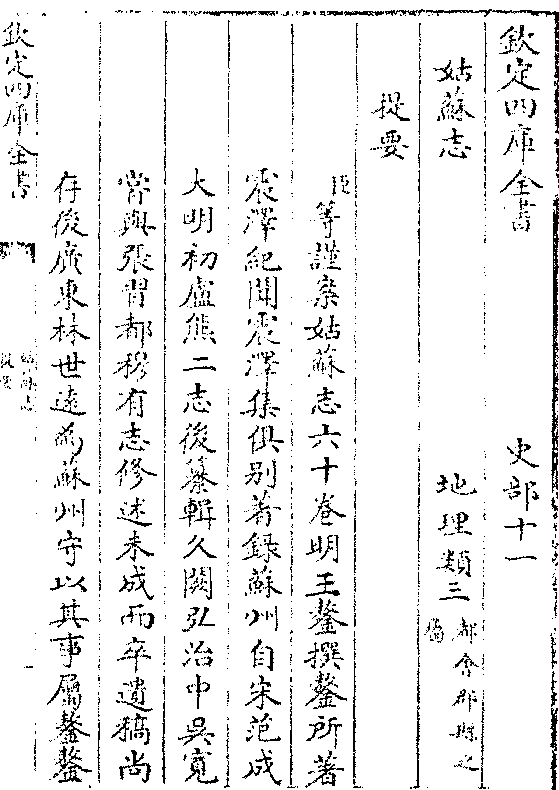 欽定四庫全書 史部十一
姑蘇志 地理類三 都會郡縣之屬
提要
臣等謹案姑蘇志六十卷明王鏊撰鏊所著
震澤紀聞震澤集俱别著錄蘇州自宋范成
大明初盧熊二志後纂輯久闕弘治中吳寬
嘗與張習都穆有志修述未成而卒遺稿尚
存後廣東林世遠為蘇州守以其事屬鏊鏊
欽定四庫全書
姑蘇志
提要